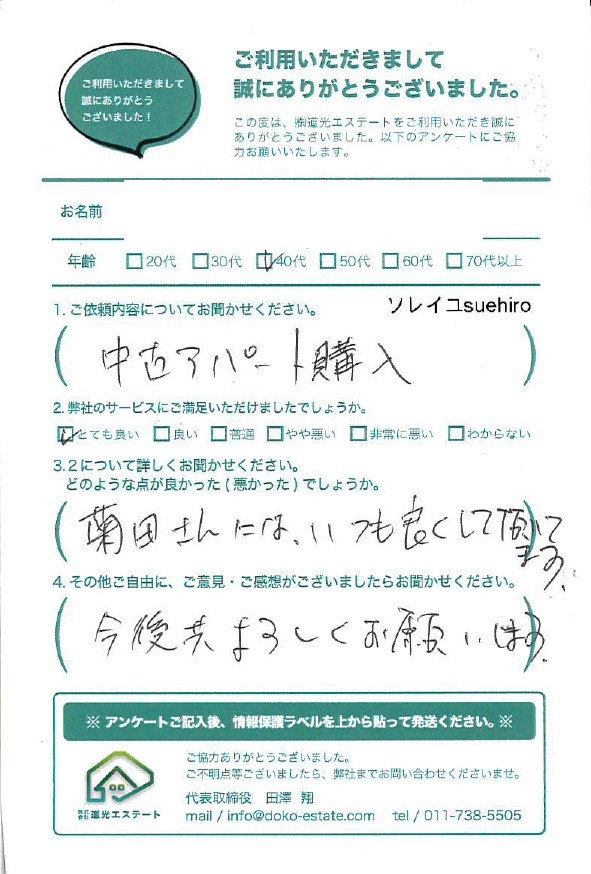 ご利用いただきまして
誠にありがとう
ございました！
ご利用いただきまして
誠にありがとうございました。
この度は、㈱道光エステートをご利用いただき誠に
ありがとうございました。以下のアンケートにご協
力お願いいたします。
お名前
年齢 20代 30代 40代 50代 60代 70代以上
1. ご依頼内容についてお聞かせください。 ソレイユsuehiro
中古アパート購入
2. 弊社のサービスにご満足いただけましたでしょうか。
とても良い 良い 普通 やや悪い 非常に悪い わからない
3. 2について詳しくお聞かせください。
どのような点が良かった(悪かった)でしょうか。
菊田さんには、いつも良くして頂いて
ます。
4. その他ご自由に、ご意見・ご感想がございましたらお聞かせください。
今後共よろしくお願いします。
※ アンケートご記入後、情報保護ラベルを上から貼って発送ください。※
ご協力ありがとうございました。
ご不明点等ございましたら、弊社までお問い合わせくださいませ。
代表取締役 田澤 翔
株式会社 道光エステート
mail / info@doko-estate.com tel / 011-738-5505